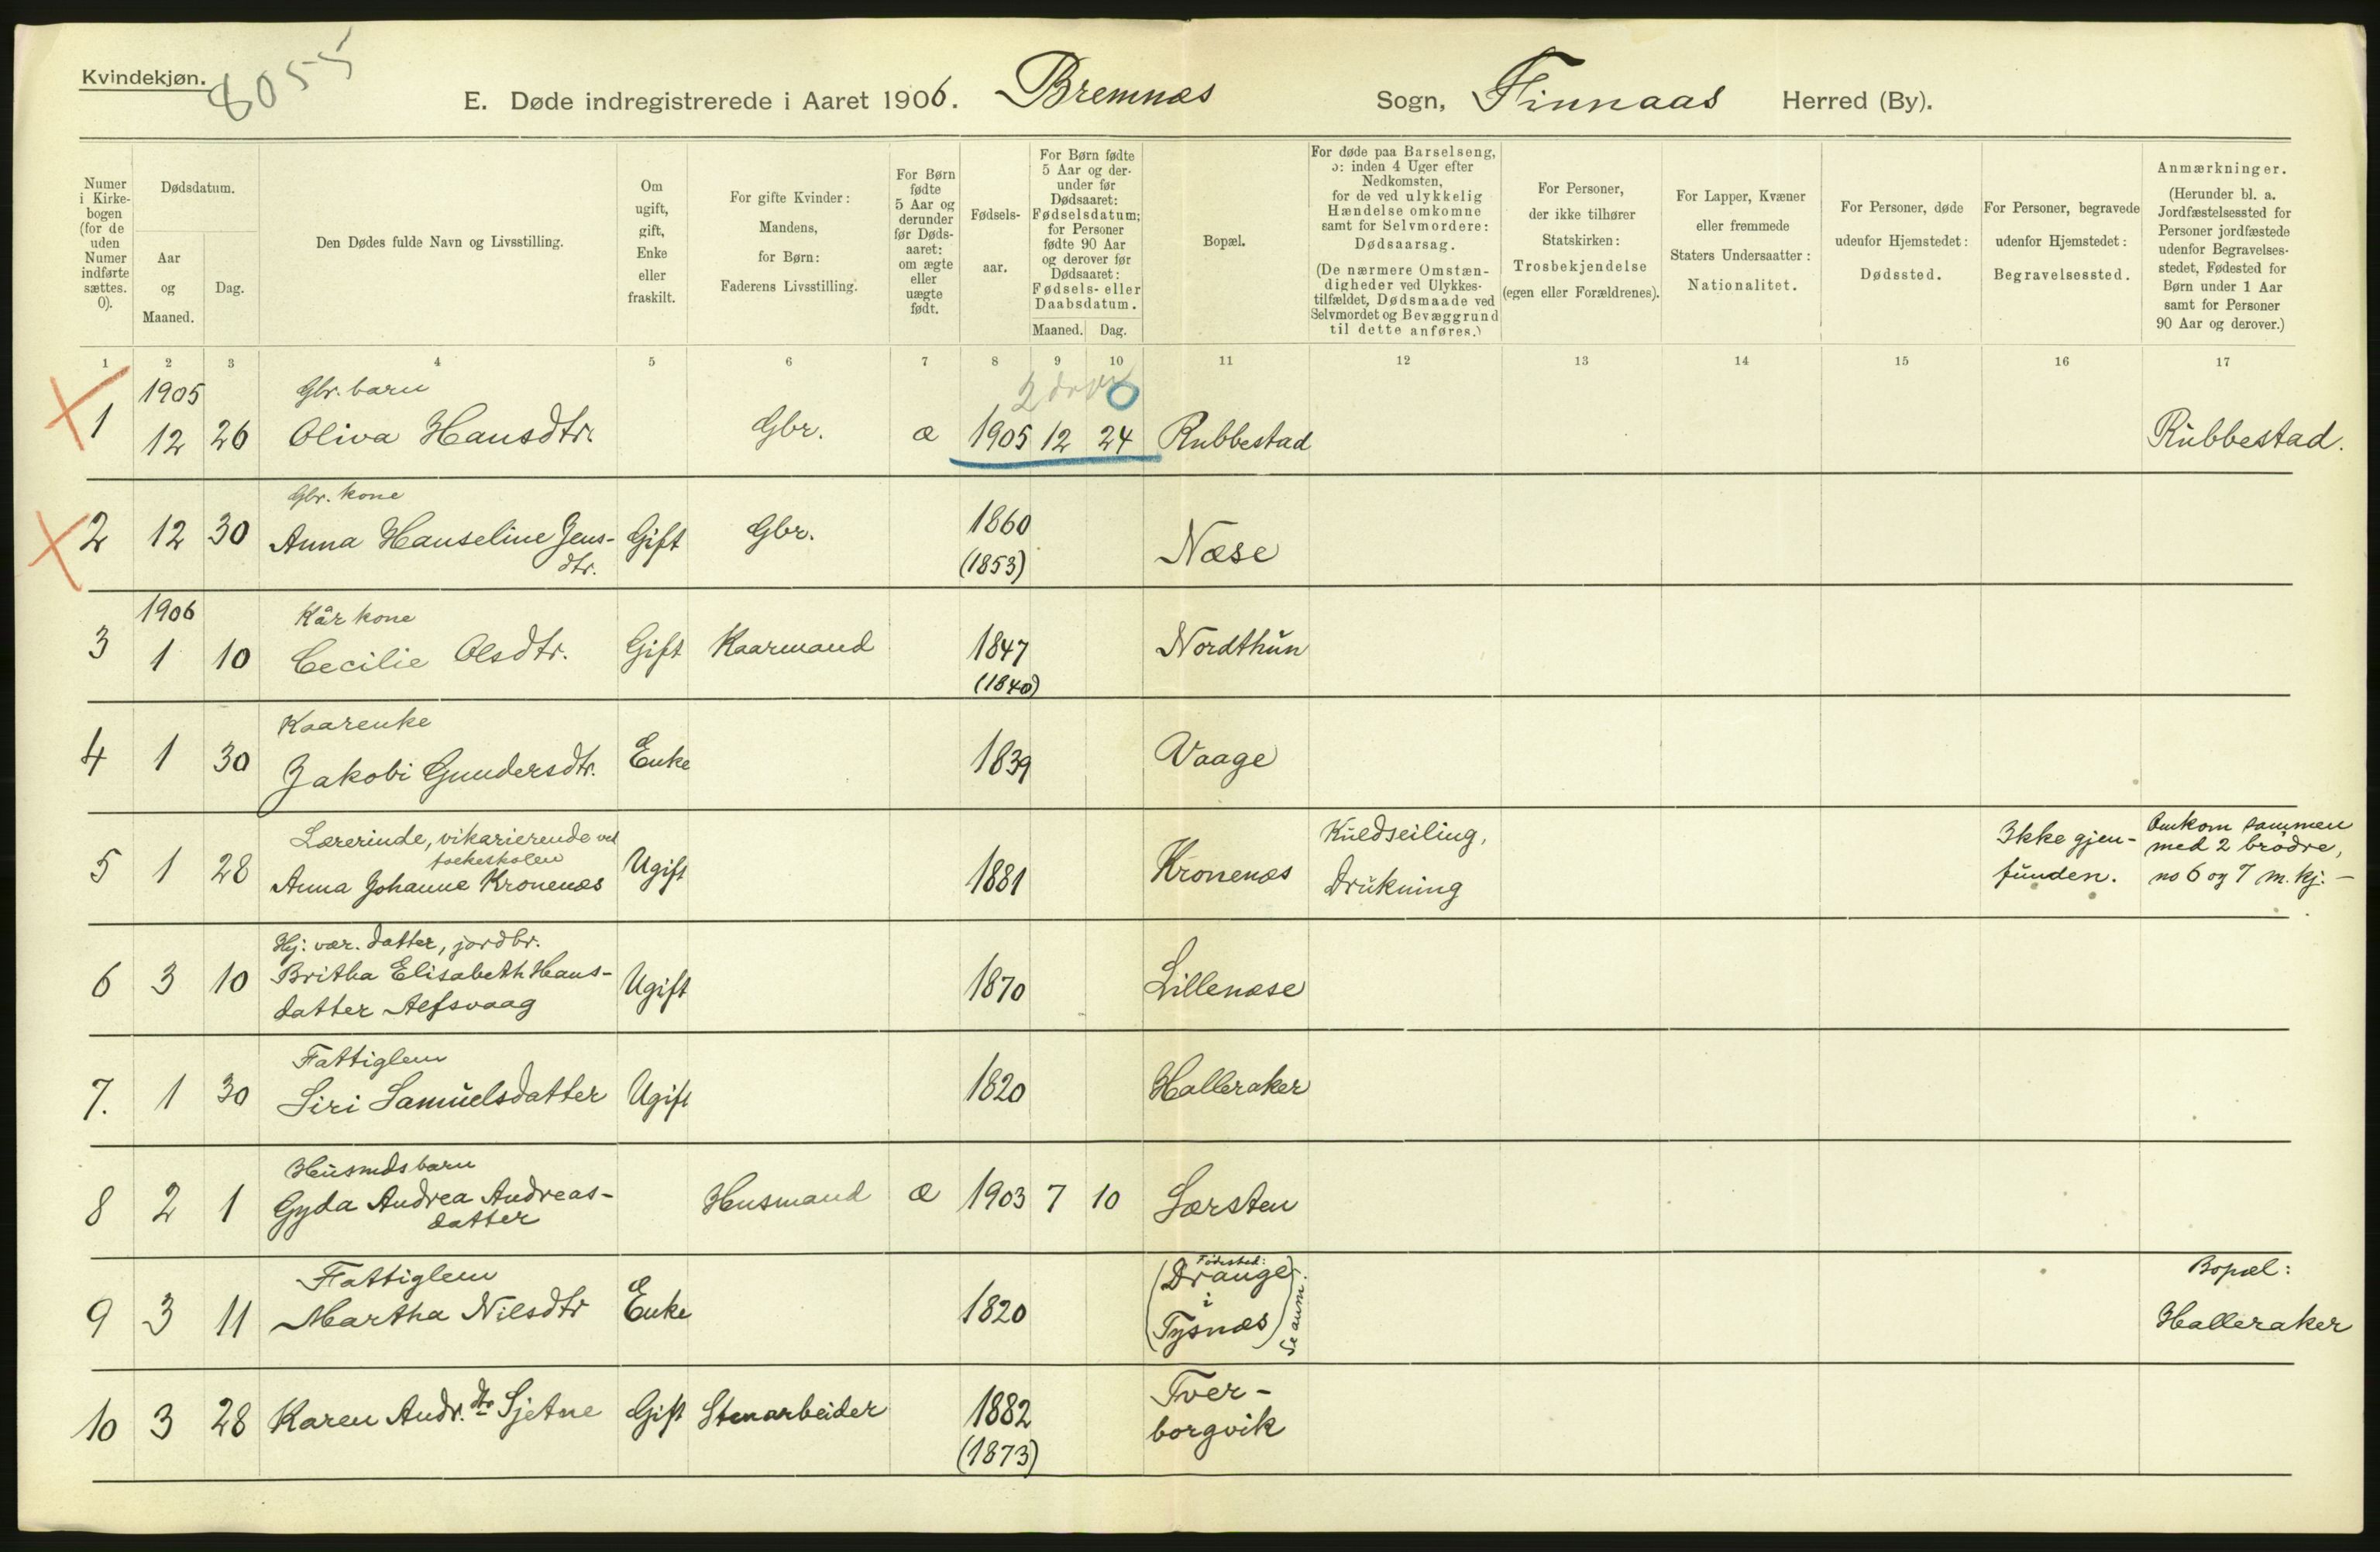 Kvindekjøn.
8055
E. Døde indregistrerede i Aaret 1906. Bremnæs Sogn, Finnaas Herred (By).
Numer i Kirkebogen (for de uden Numer indførte sættes. 0).
Dødsdatum.
Aar og Maaned.
Dag.
Den Dødes fulde Navn og Livsstilling.
Om ugift, gift, Enke eller fraskilt.
For gifte Kvinder: Mandens, for Børn: Faderens Livsstilling.
For Børn fødte 5 Aar og derunder før Døds-aaret: om ægte eller uægte født.
Fødsels-aar.
For Børn fødte 5 Aar og der-under før Dødsaaret: Fødselsdatum; for Personer fødte 90 Aar og derover før Dødsaaret: Fødsels- eller Daabsdatum.
Maaned. Dag.
Bopæl.
For døde paa Barselseng, ɔ: inden 4 Uger efter Nedkomsten, for de ved ulykkelig Hændelse omkomne samt for Selvmordere: Dødsaarsag.
(De nærmere Omstæn-digheder ved Ulykkes-tilfældet, Dødsmaade ved Selvmordet og Bevæggrund til dette anføres.)
For Personer, der ikke tilhører Statskirken: Trosbekjendelse (egen eller Forældrenes).
For Lapper, Kvæner eller fremmede Staters Undersaatter: Nationalitet.
For Personer, døde udenfor Hjemstedet: Dødssted.
For Personer, begravede udenfor Hjemstedet: Begravelsessted.
Anmærkninger.
(Herunder bl. a. Jordfæstelsessted for Personer jordfæstede udenfor Begravelses-stedet, Fødested for Børn under 1 Aar samt for Personer 90 Aar og derover.)
1 2 3 4 5 6 7 8 9 10 11 12 13 14 15 16 17
1905 Gbr. barn 2 0
1 12 26 Oliva Hansdtr. Gbr. æ 1905 12 24 Rubbestad Rubbestad.
Gbr. kone
2 12 30 Anna Hanseline Jens- Gift Gbr. 1860 Næse
dtr. (1853)
1906 Kår kone
3 1 10 Cecilie Olsdtr. Gift Kaarmand 1847 Nordthun
(1840)
Kaarenke
4 1 30 Jakobi Gundersdtr. Enke 1839 Vaage
Lærerinde, vikarierende ved Kuldseiling, Ikke gjen- Omkom sammen
folkeskolen med 2 brødre,
5 1 28 Anna Johanne Kronenæs Ugift 1881 Kronenæs Drukning funden. no 6 og 7 m. kj. –
Hj: vær. datter, jordbr.
6 3 10 Britha Elisabeth Hans- Ugift 1870 Lillenæse
datter Alfsvaag
Fattiglem
7. 1 30 Siri Samuelsdatter Ugift 1820 Halleraker
Husmdsbarn
8 2 1 Gyda Andrea Andreas- Husmand æ 1903 7 10 Sørsten
datter
Fattiglem (Fødested: Drange Bopæl:
9 3 11 Martha Nilsdtr Enke 1820 i Tysnæs) Se anm. Halleraker
10 3 28 Karen Andr. dtr Sjetne Gift Stenarbeider 1882 Tver-
(1873) borgvik